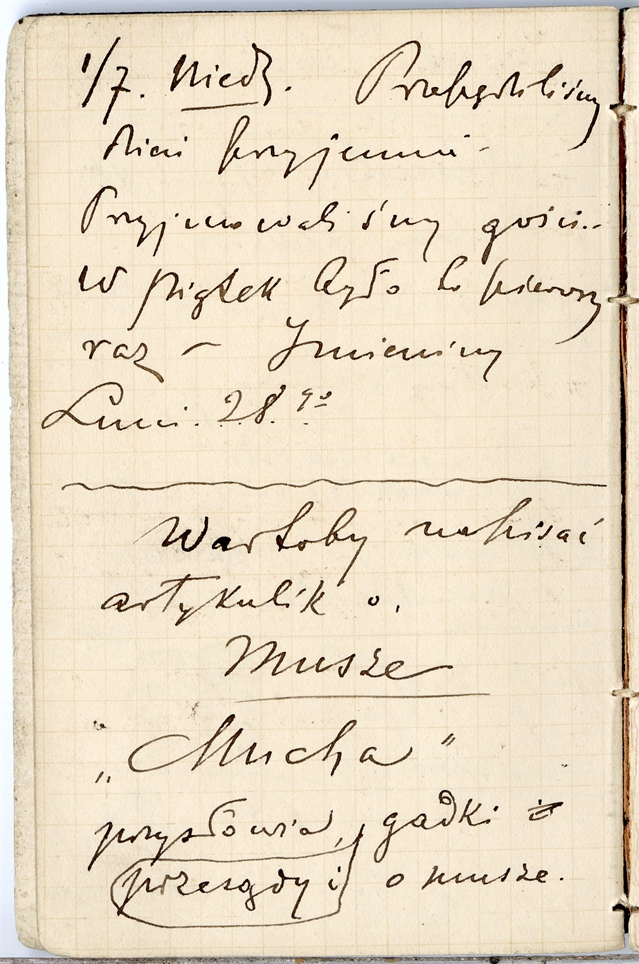 1/7. Niedz. Przepędziliśmy
dzień przyjemnie.
Przyjmowaliśmy gości.
W piątek było to pierwszy
raz — Imieniny
Luni. 28.go
Wartoby napisać
artykulik o.
Musze
„Mucha"
przysłowia, gadki i
przesądy i o musze.